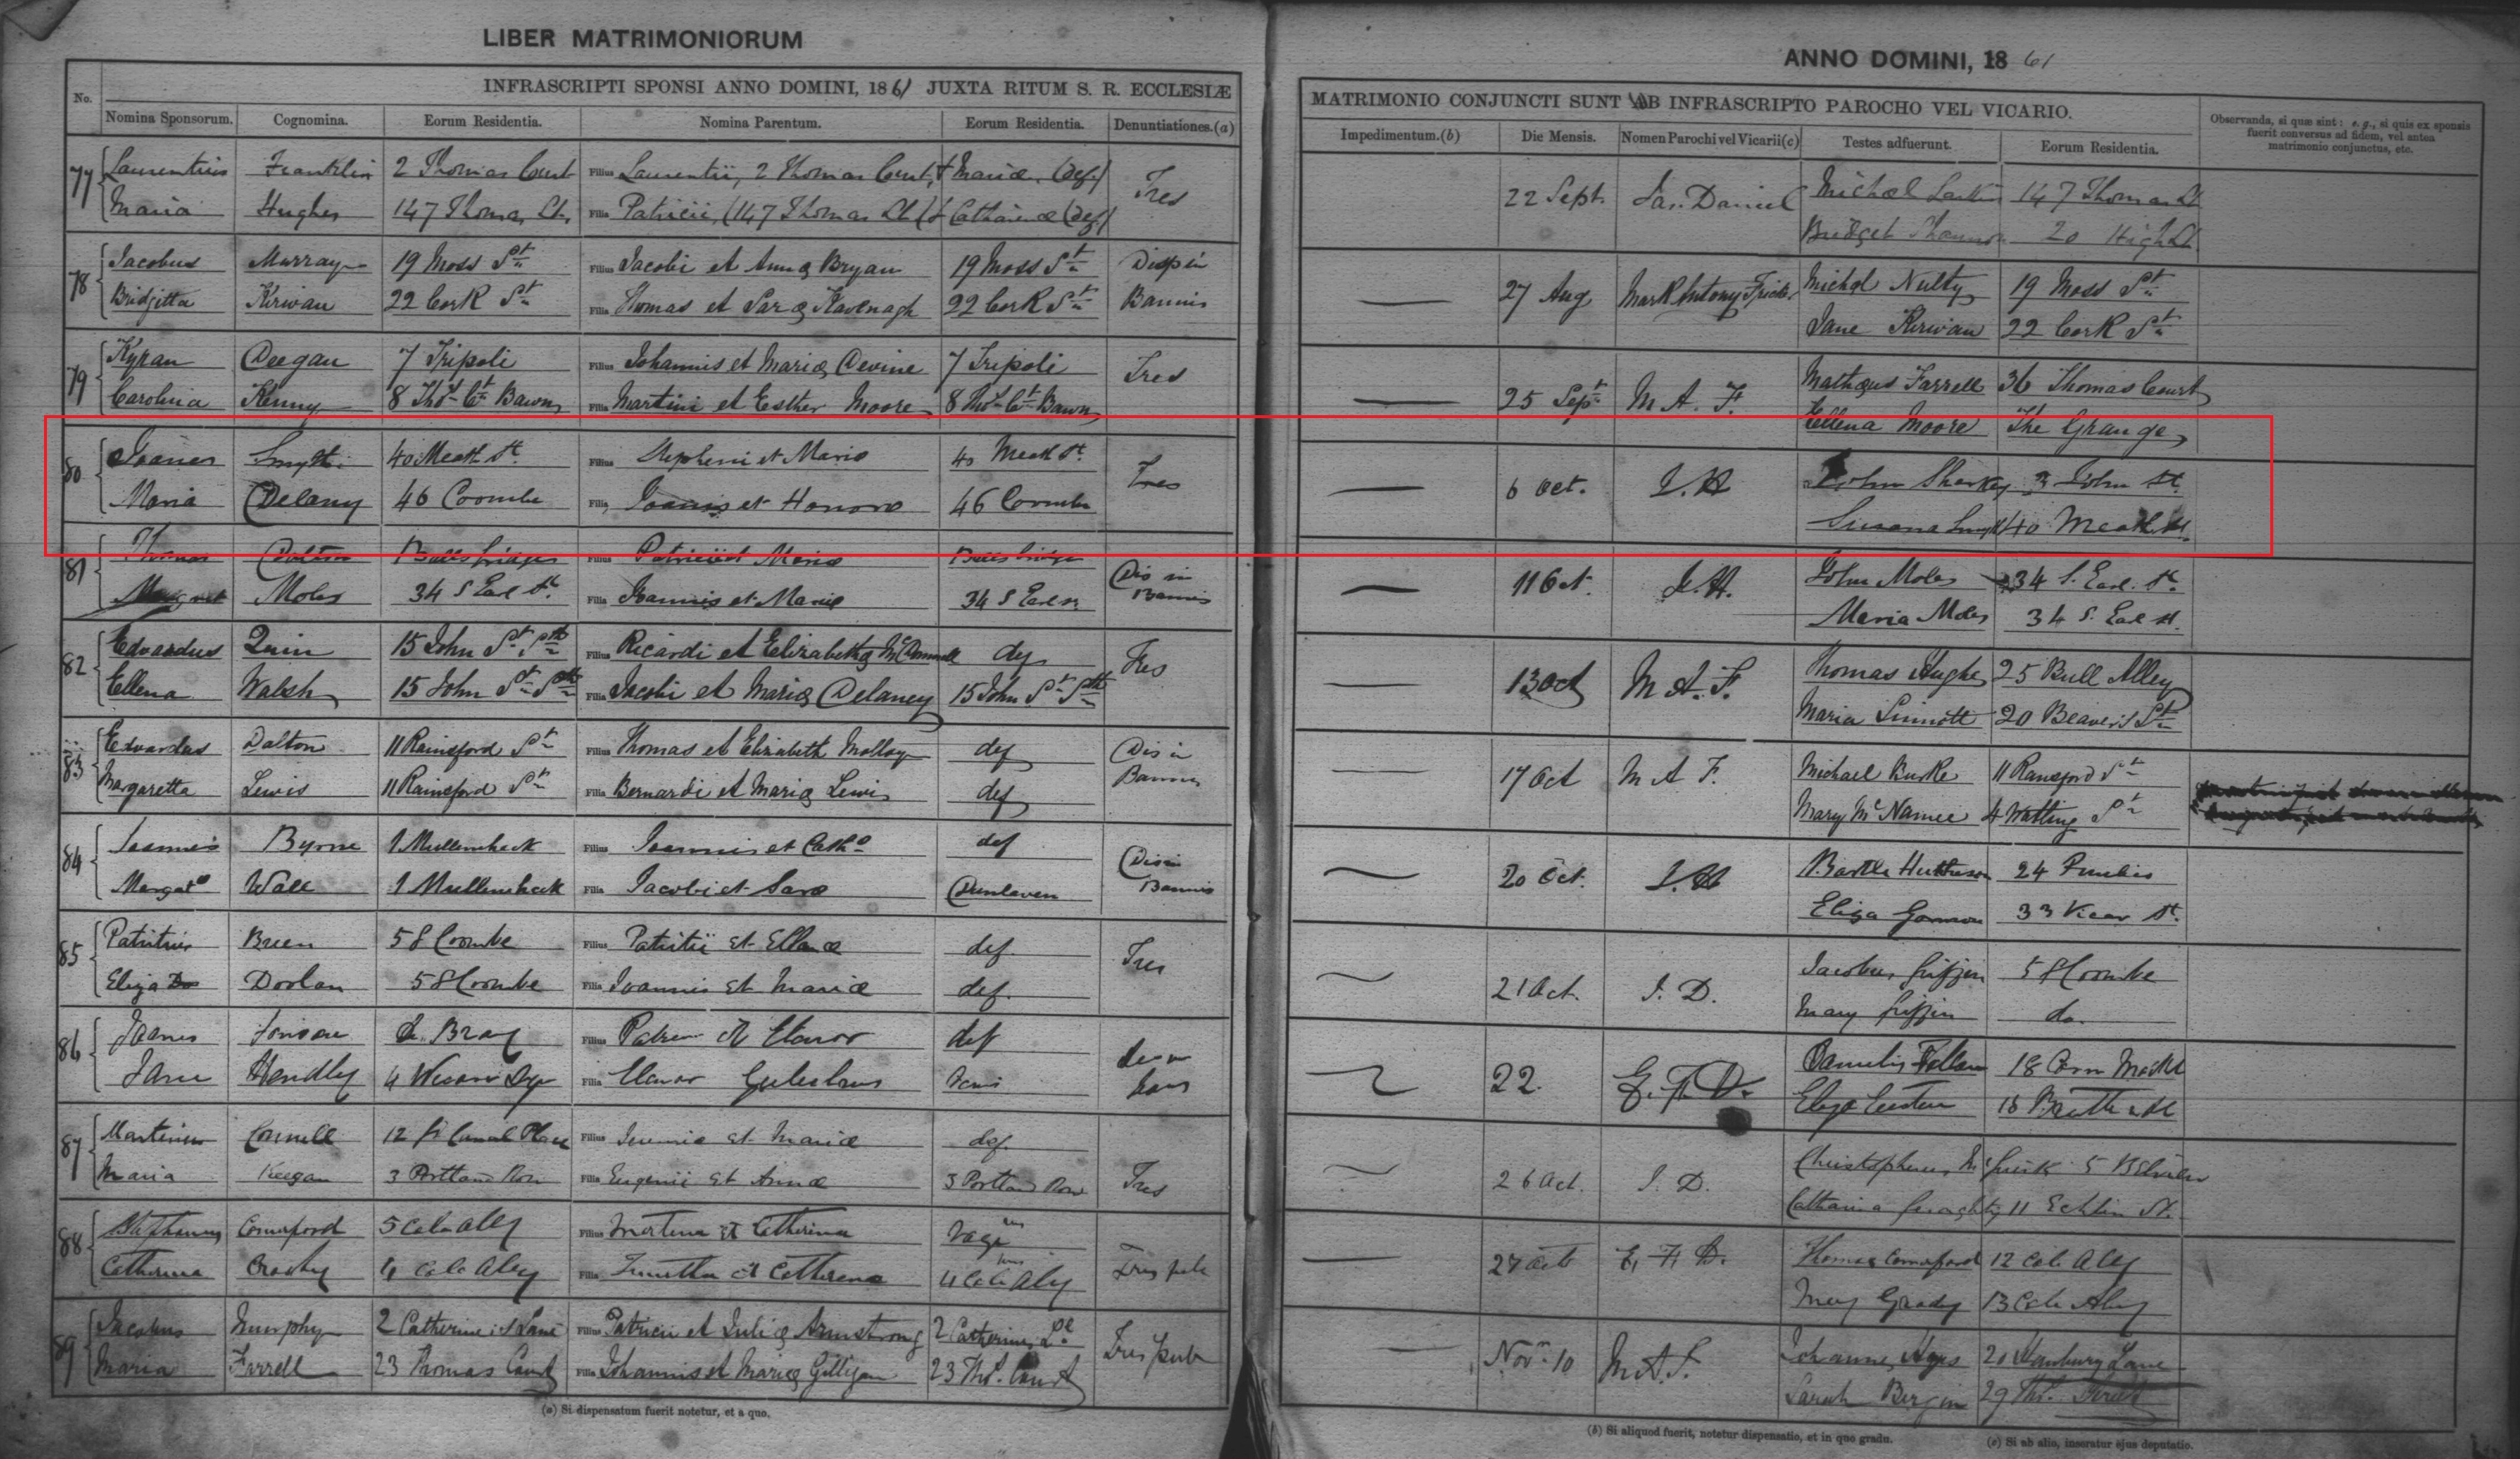 LIBER MATRIMONIORUM
ANNO DOMINI, 1861
INFRASCRIPTI SPONSI ANNO DOMINI, 1861 JUXTA RITUM S. R. ECCLESIÆ
MATRIMONIO CONJUNCTI SUNT AB INFRASCRIPTO PAROCHO VEL VICARIO.
Observanda, si quæ sint: e.g., si quis ex sponsis fuerit conversus ad fidem, vel antea matrimonio conjunctus, etc.
No. Nomina Sponsorum. Cognomina. Eorum Residentia. Nomina Parentum. Eorum Residentia. Denuntiationes.(a) Impedimentum.(b) Die Mensis. Nomen Parochi vel Vicarii(c) Testes adfuerunt. Eorum Residentia.
77 Laurentius Franklin 2 Thomas Court Filius Laurentii, 2 Thomas Court, & Mariæ (def) Tres 22 Sept. Jas. Daniel Michael Larkin 147 Thomas St
Maria Hughes 147 Thomas St. Filia Patricii, (147 Thomas St) & Catharinæ (def) Bridget 20 High St.
78 Jacobus Murray 19 Moss St Filius Jacobi et Annæ Bryan 19 Moss St Disp in 27 Aug Mark Antony Michæl Nulty 19 Moss St
Bridgitta Kirwan 22 Cork St Filia Thomas et Saræ Kavenagh 22 Cork St Bannis Jane Kirwan 22 Cork St
79 Kyran Deegan 7 Tripoli Filius Johannis et Mariæ Devine 7 Tripoli Tres 25 Sept M A. F. Mathæus Farrell 36 Thomas Court
Carolina Kenny 8 Thos Ct Bawn Filia Martini et Esther Moore 8 Thos Ct Bawn Ellena Moore The Grange
80 Joanes Smyth 40 Meath St. Filius Stepheni et Maria 40 Meath St. Tres 6 Oct. J. H John Sharkey 3 John St.
Maria Delany 46 Coombe Filia Joannis et Honora 46 Coombe Susana Smyth 40 Meath St.
81 Thomas Ballsbridge Filius Patricii et Maria Ballsbridge Dis in 11 Oct. J. H. John Moles 34 S. Earl. St.
Margret Moles 34 S Earl St. Filia Joannis et Maria 34 S Earl St. Bannis Maria Moles 34 S. Earl St.
82 Edvardus Quin 15 John St Sth Filius Ricardi et Elizabethæ McDonnell def Tres 13 Oct M A. F. Thomas Hughes 25 Bull Alley
Ellena Walsh 15 John St Sth Filia Jacobi et Mariæ Delaney 15 John St Sth Maria Sinnott 20 Beavers St
83 Edvardus Dalton 11 Rainsford St Filius Thomas et Elizabeth Molloy def Dis in 17 Oct M A F. Michael Burke 11 Ransford St
Margaretta Lewis 11 Rainsford St Filia Bernardi et Mariæ Lewis def Bannis Mary McNamee 4 Watling St
84 Joannis Byrne 1 Mullinahack Filius Joannis et Cath def Dis in 20 Oct. J. H Bartle 24
Margat Wall 1 Mullinahack Filia Jacobi et Sara Dunlaven Bannis Eliza Gannon 33 Vicar St.
85 Patritius Breen 58 Coombe Filius Patritii et Ellenæ def. Tres 21 Oct. J. D. Jacobus Griffin 58 Coombe
Eliza Doolan 58 Coombe Filia Joannis et Mariæ def. Mary Griffin do.
86 Bray Filius et Elanor def 22. E. F. D. 18 Corn Markt
Jane Hendley 4 Filia Elanor
87 Martinus Connell 12 Canal Place Filius et Mariæ def. Tres 26 Oct. J. D. Christopherus 5
Maria Keegan 3 Portland Row Filia Eugenii et Annæ 3 Portland Row Catharina Geraghty 11 Echlin St.
88 Stephanus Comerford 5 Cole Aley Filius et Catherina Tres pub 27 Octo E. F. D. Thomas Comerford 12 Cole Aley
Catherina 4 Cole Aley Filia et Catherena 4 Cole Aly Mary Grady 13 Cole Aly
89 Jacobus Murphy 2 Catherine's Lane Filius Patricii et Juliæ Armstrong 2 Catherines Le Tres pub Nov. 10 M A. F. Johannes Hays 20 Hanbury Lane
Maria Farrell 23 Thomas Court Filia Johannis et Mariæ Gilligan 23 Ths. Court Sarah Bergin 29 Ths. Street
(a) Si dispensatum fuerit notetur, et a quo.
(b) Si aliquod fuerit, notetur dispensatio, et in quo gradu.
(c) Si ab alio, inseratur ejus deputatio.